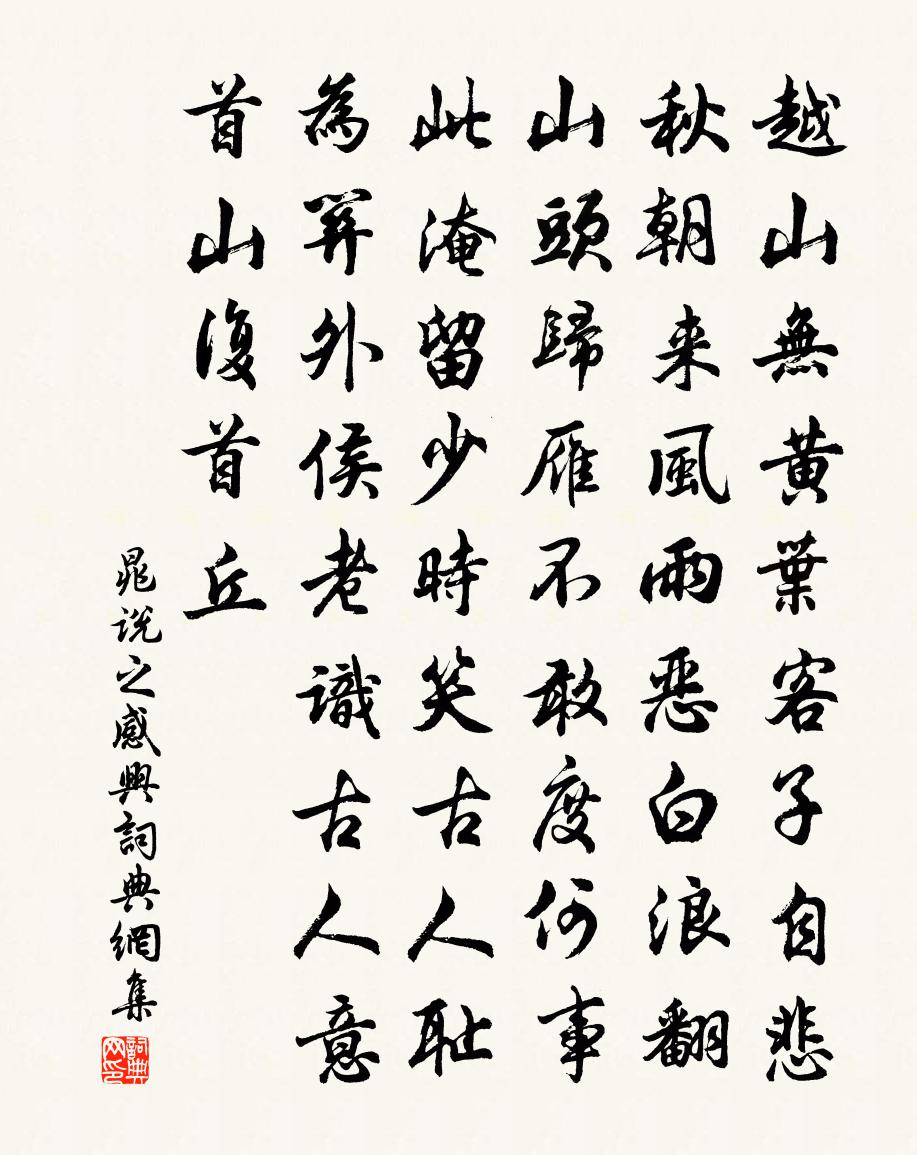 越山無黄葉客子自悲
秋朝来風雨惡白浪翻
山頭歸雁不敢度何事
此淹留少時笑古人耻
為關外侯老識古人意
首山復首丘
晁説之感興詞典網集
詞典网印